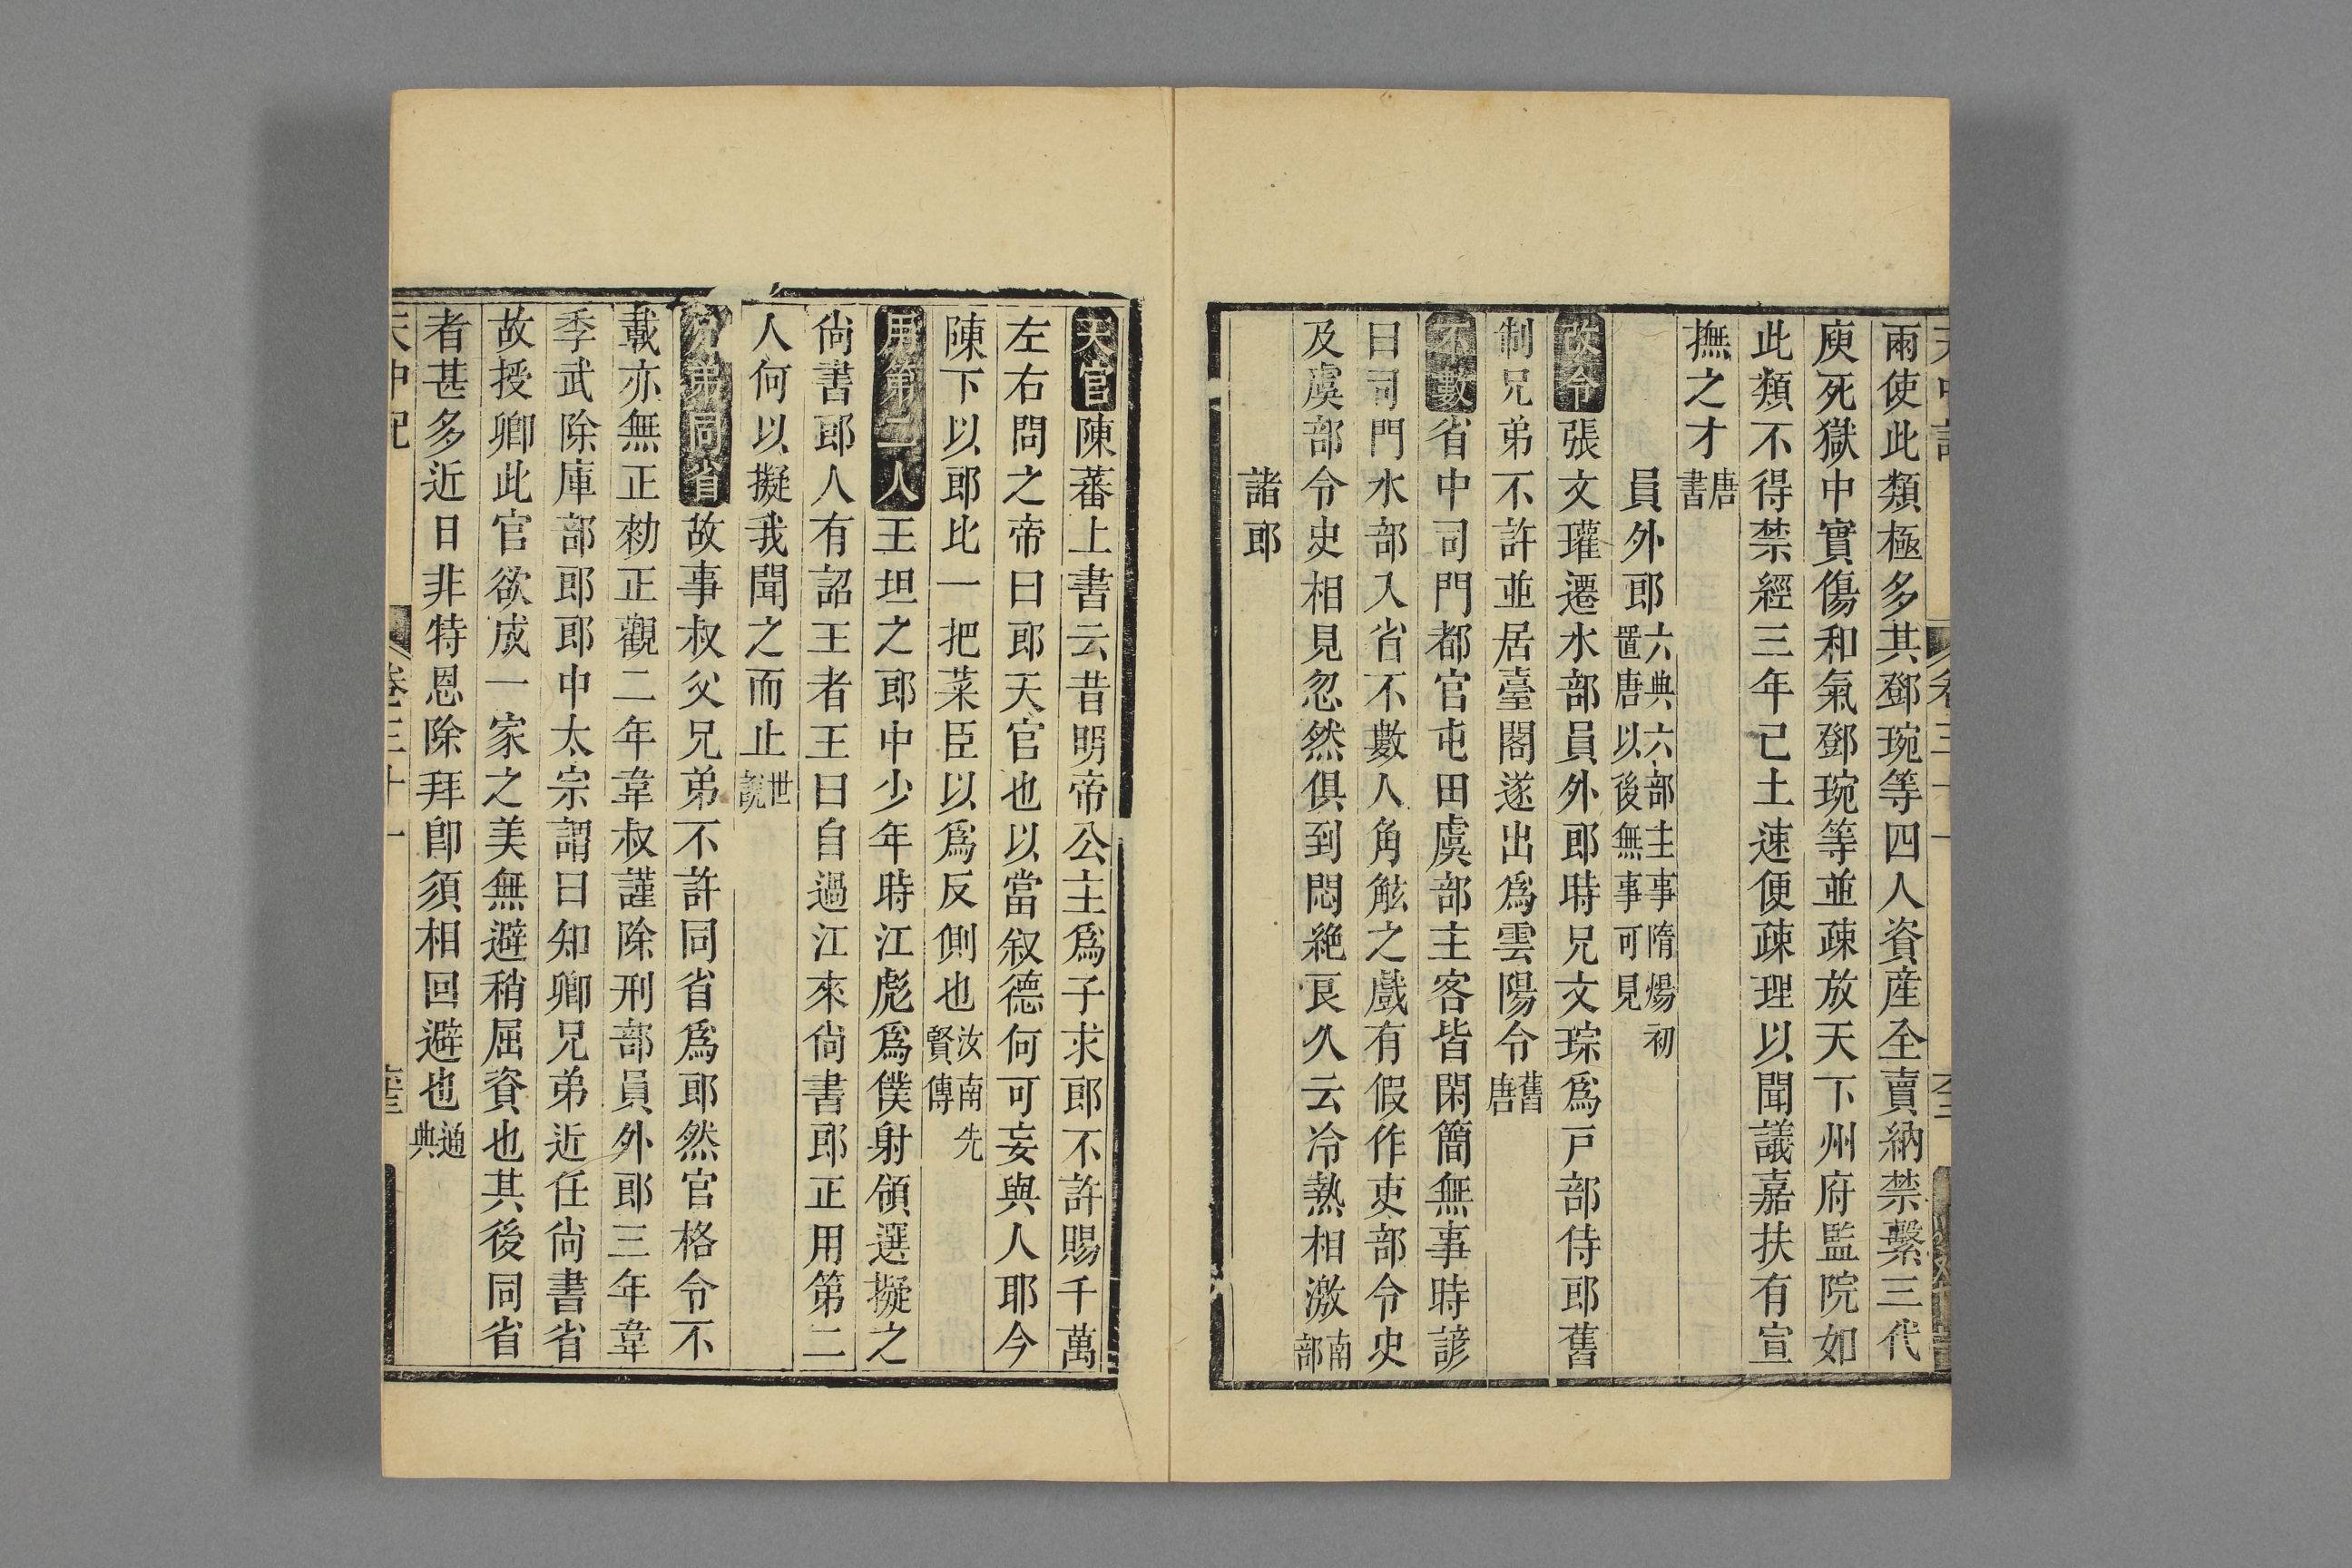 雨使此類極多其鄧琬等四人資産全賣納禁繫三代
庾死獄中實傷和氣鄧琬等並疎放天下州府監院如
此類不得禁經三年已土速便疎理以聞議嘉扶有宣
撫之才唐書
員外郎六典六部主事隋煬初置唐以後無事可見
改令張文瓘遷水部員外郎時兄文琮爲戸部侍郎舊
制兄弟不許並居臺閣遂出爲雲陽令舊唐
不數省中司門都官屯田虞部主客皆閑簡無事時諺
曰司門水部入省不數人角觝之戲有假作吏部令史
及虞部令史相見忽然俱到悶絶良久云冷熱相激南部
諸郎
天官陳蕃上書云昔明帝公主爲子求郎不許賜千萬
左右問之帝曰郎天官也以當叙德何可妄與人耶今
陳下以郎比一把菜臣以爲反側也汝南先賢傳
用第二人王坦之郎中少年時江彪爲僕射領選擬之
尙書郎人有詔王者王曰自過江來尙書郎正用第二
人何以擬我聞之而止世說
兄弟同省故事叔父兄弟不許同省爲郎然官格令不
載亦無正勑正觀二年韋叔謹除刑部員外郎三年韋
季武除庫部郎郎中太宗謂曰知卿兄弟近任尙書省
故授卿此官欲成一家之美無避稍屈資也其後同省
者甚多近日非特恩除拜卽須相回避也通典
天中記 卷三十一